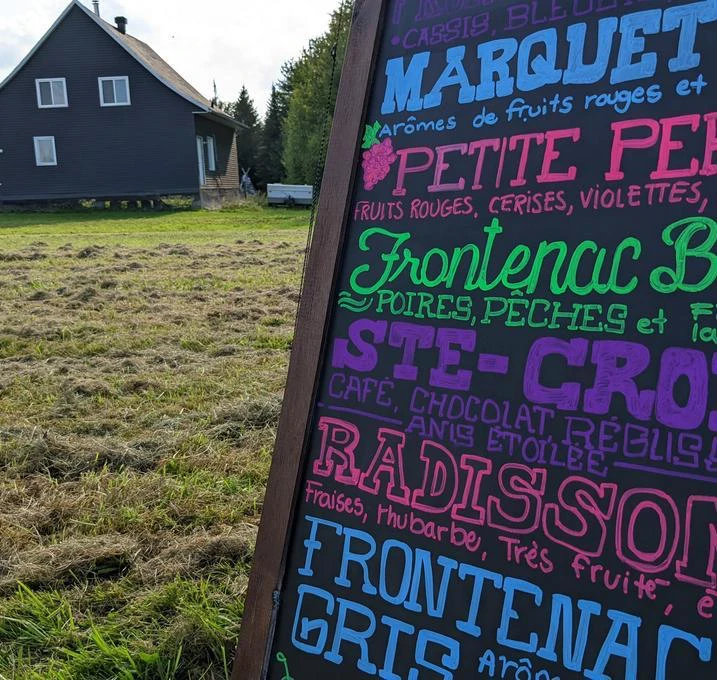 • CASSIS, BLEUE
MARQUET
Arômes de fruits rouges et
PETITE PE
FRUITS ROUGES, CERISES, VIOLETTES,
Frontenac B
POIRES, PÊCHES et
STE-CRO
CAFÉ, CHOCOLAT, RÉGLIS
ANIS ÉTOILÉE
RADISSON
Fraises, rhubarbe, Très fruité, e
FRONTENAC
GRIS Arôm